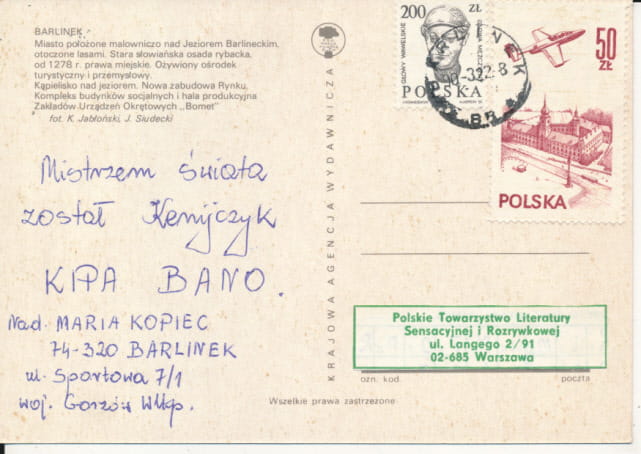 BARLINEK
Miasto położone malowniczo nad Jeziorem Barlineckim,
otoczone lasami. Stara słowiańska osada rybacka,
od 1278 r. prawa miejskie. Ożywiony ośrodek
turystyczny i przemysłowy.
Kąpielisko nad jeziorem. Nowa zabudowa Rynku,
Kompleks budynków socjalnych i hala produkcyjna
Zakładów Urządzeń Okrętowych „Bomet"
fot. K. Jabłoński, J. Siudecki
Mistrzem świata
został Kenijczyk
KIPA BANO.
Nad. MARIA KOPIEC
74-320 BARLINEK
ul. Sportowa 7/1
woj. Gorzów Wlkp.
KRAJOWA AGENCJA WYDAWNICZA
200 ZŁ
GŁOWY WAWELSKIE
POLSKA
BARLINEK
50 ZŁ
POLSKA
Polskie Towarzystwo Literatury
Sensacyjnej i Rozrywkowej
ul. Langego 2/91
02-685 Warszawa
ozn. kod.
poczta
Wszelkie prawa zastrzeżone